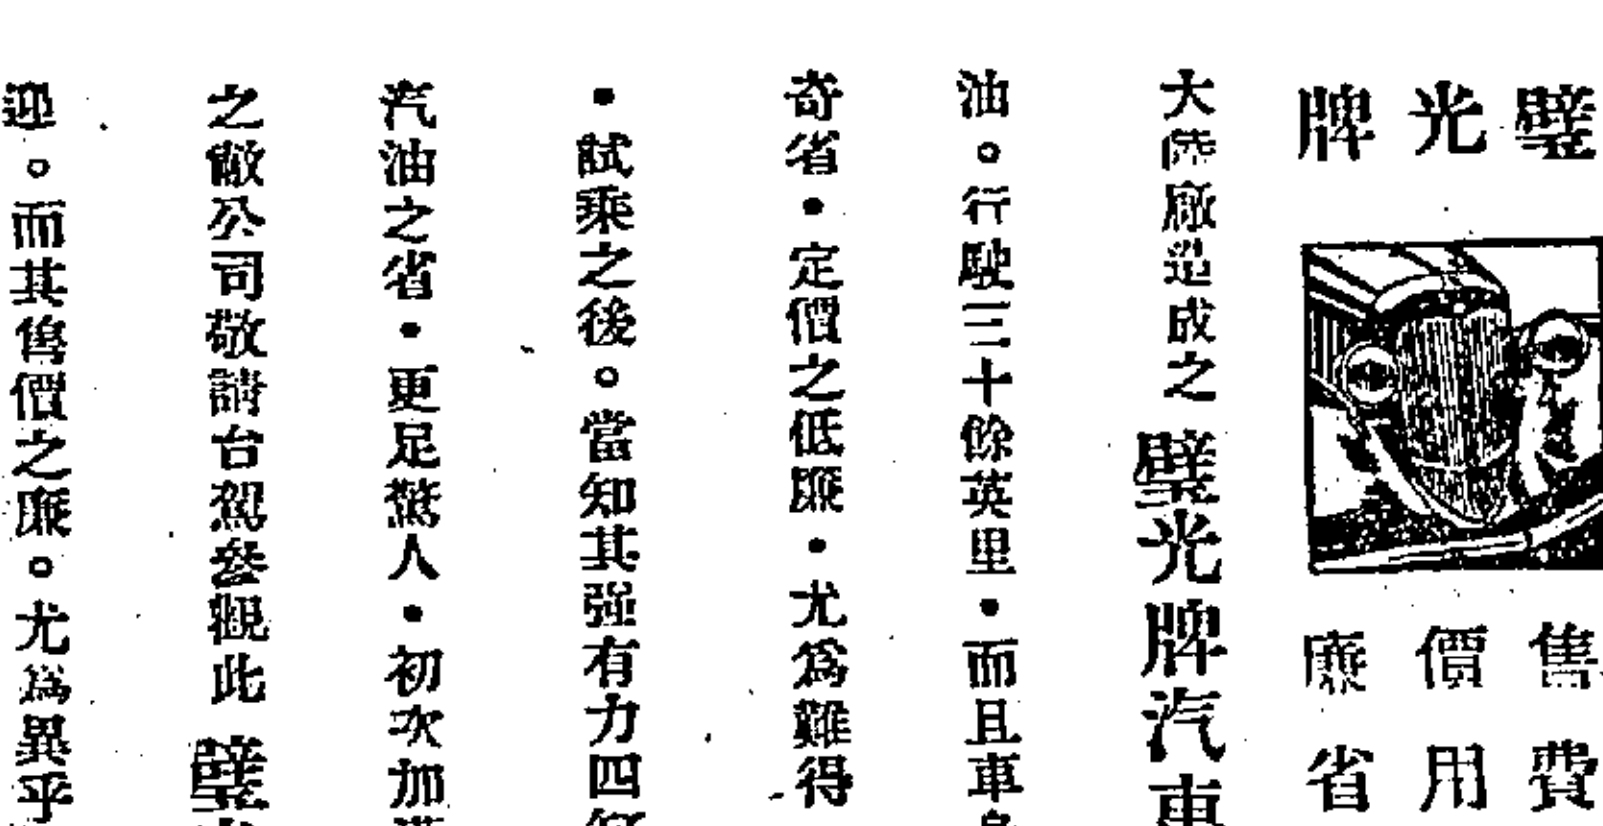 璧光牌
售價廉
費用省
大陸廠造成之璧光牌汽車
油。行駛三十餘英里・而且車
奇省・定價之低廉・尤爲難得
・試乘之後。當知其强有力四
汽油之省・更足驚人・初次加
之敝公司敬請台駕參觀此璧
迎。而其售價之廉。尤爲異乎